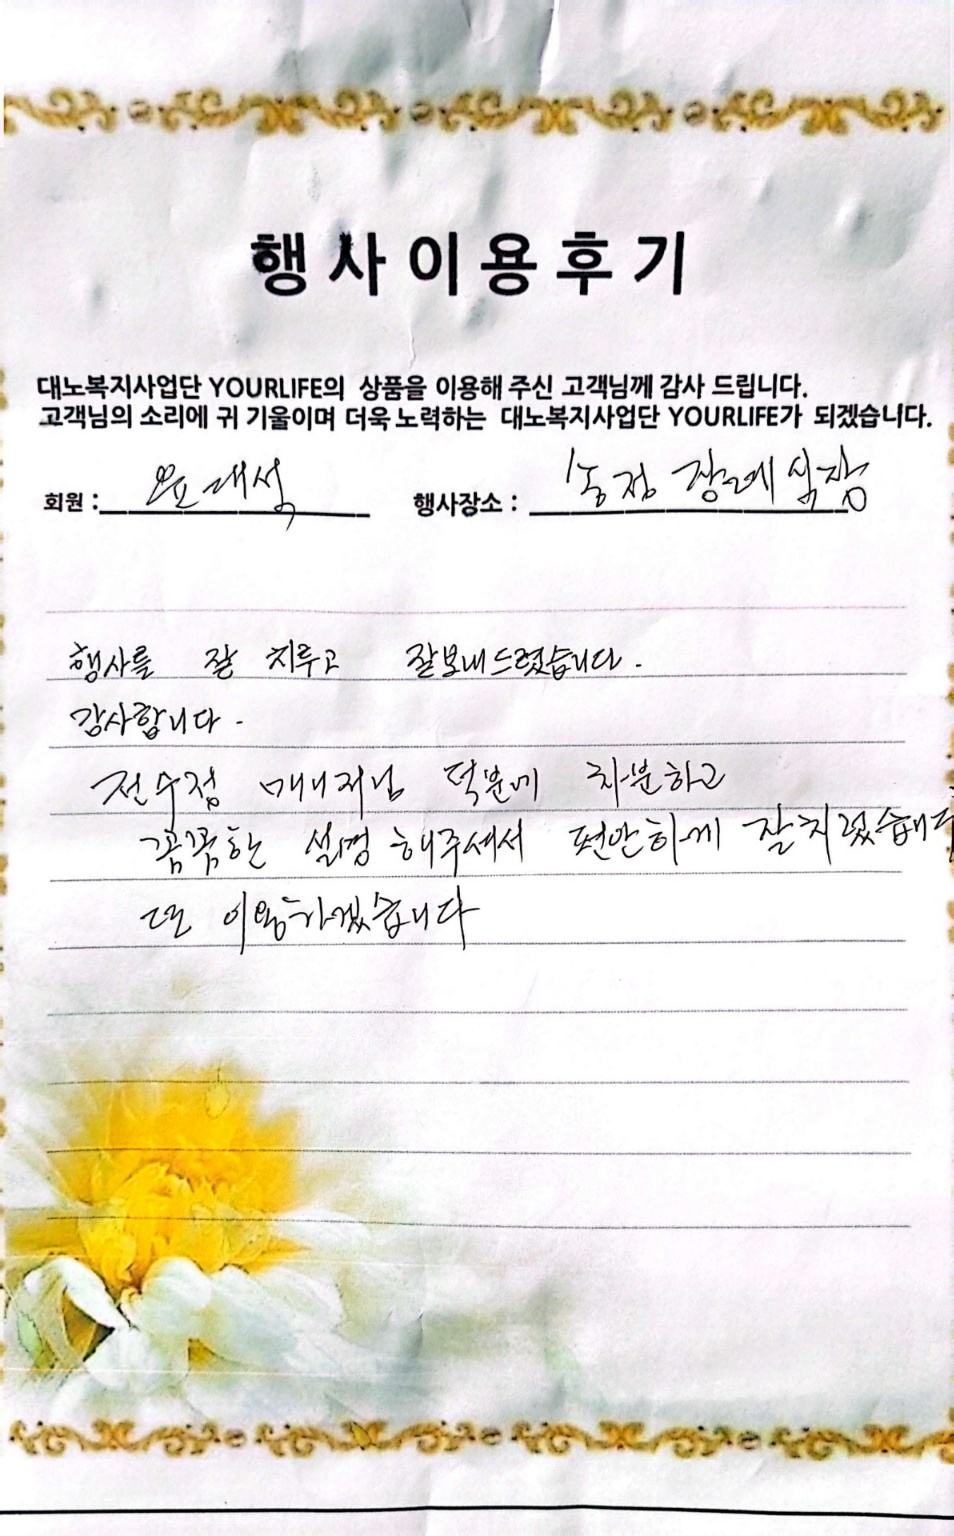 행사이용후기
대노복지사업단 YOURLIFE의 상품을 이용해 주신 고객님께 감사 드립니다.
고객님의 소리에 귀 기울이며 더욱 노력하는 대노복지사업단 YOURLIFE가 되겠습니다.
회원 : 대석 행사장소 : 장례식장
행사를 잘 치루고 잘보내드렸습니다.
감사합니다.
전수정 매니저님 덕분에 차분하고
꼼꼼한 설명 해주셔서 편안하게 잘치렀습니다
또 이용하겠습니다